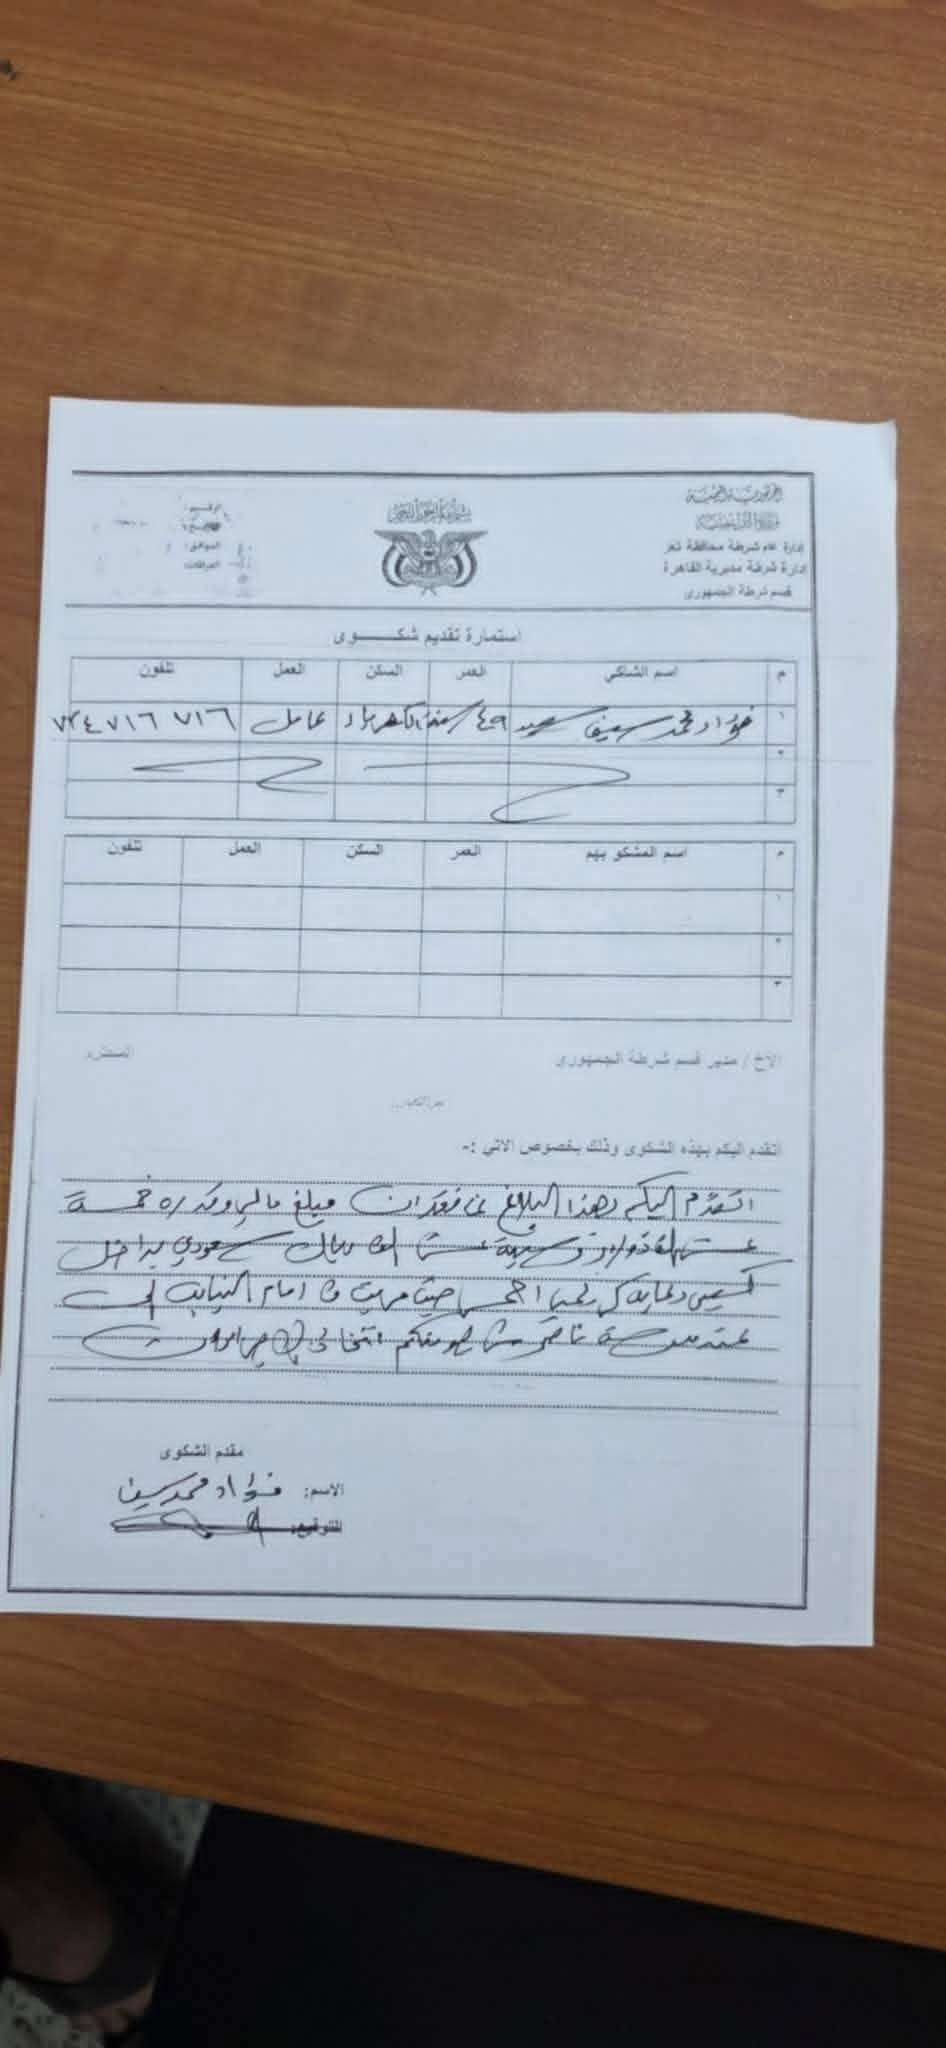 الجمهورية اليمنية
وزارة الداخلية
إدارة عام شرطة محافظة تعز
إدارة شرطة مديرية القاهرة
قسم شرطة الجمهوري
بسم الله الرحمن الرحيم
الرقم:
التاريخ:
الموافق:
المرفقات:
استمارة تقديم شكـــــــوى
م اسم الشاكي العمر السكن العمل تلفون
١ فؤاد محمد سيف سعيد ٤٩ سنة عامل ٧٣٤٧١٦٧١٦
٢
٣
م اسم المشكو بهم العمر السكن العمل تلفون
١
٢
٣
الاخ / مدير قسم شرطة الجمهوري المحترم
بعد التحية،،
اتقدم اليكم بهذه الشكوى وذلك بخصوص الاتي :-
اتقدم اليكم بهذا البلاغ عن فقدان مبلغ مالي وقدره خمسة
عشر الف دولار الف ريال سعودي بداخل
كيس احمر حيث امام النيابة
عند
مقدم الشكوى
الاسم: فؤاد محمد سيف
التوقيع: